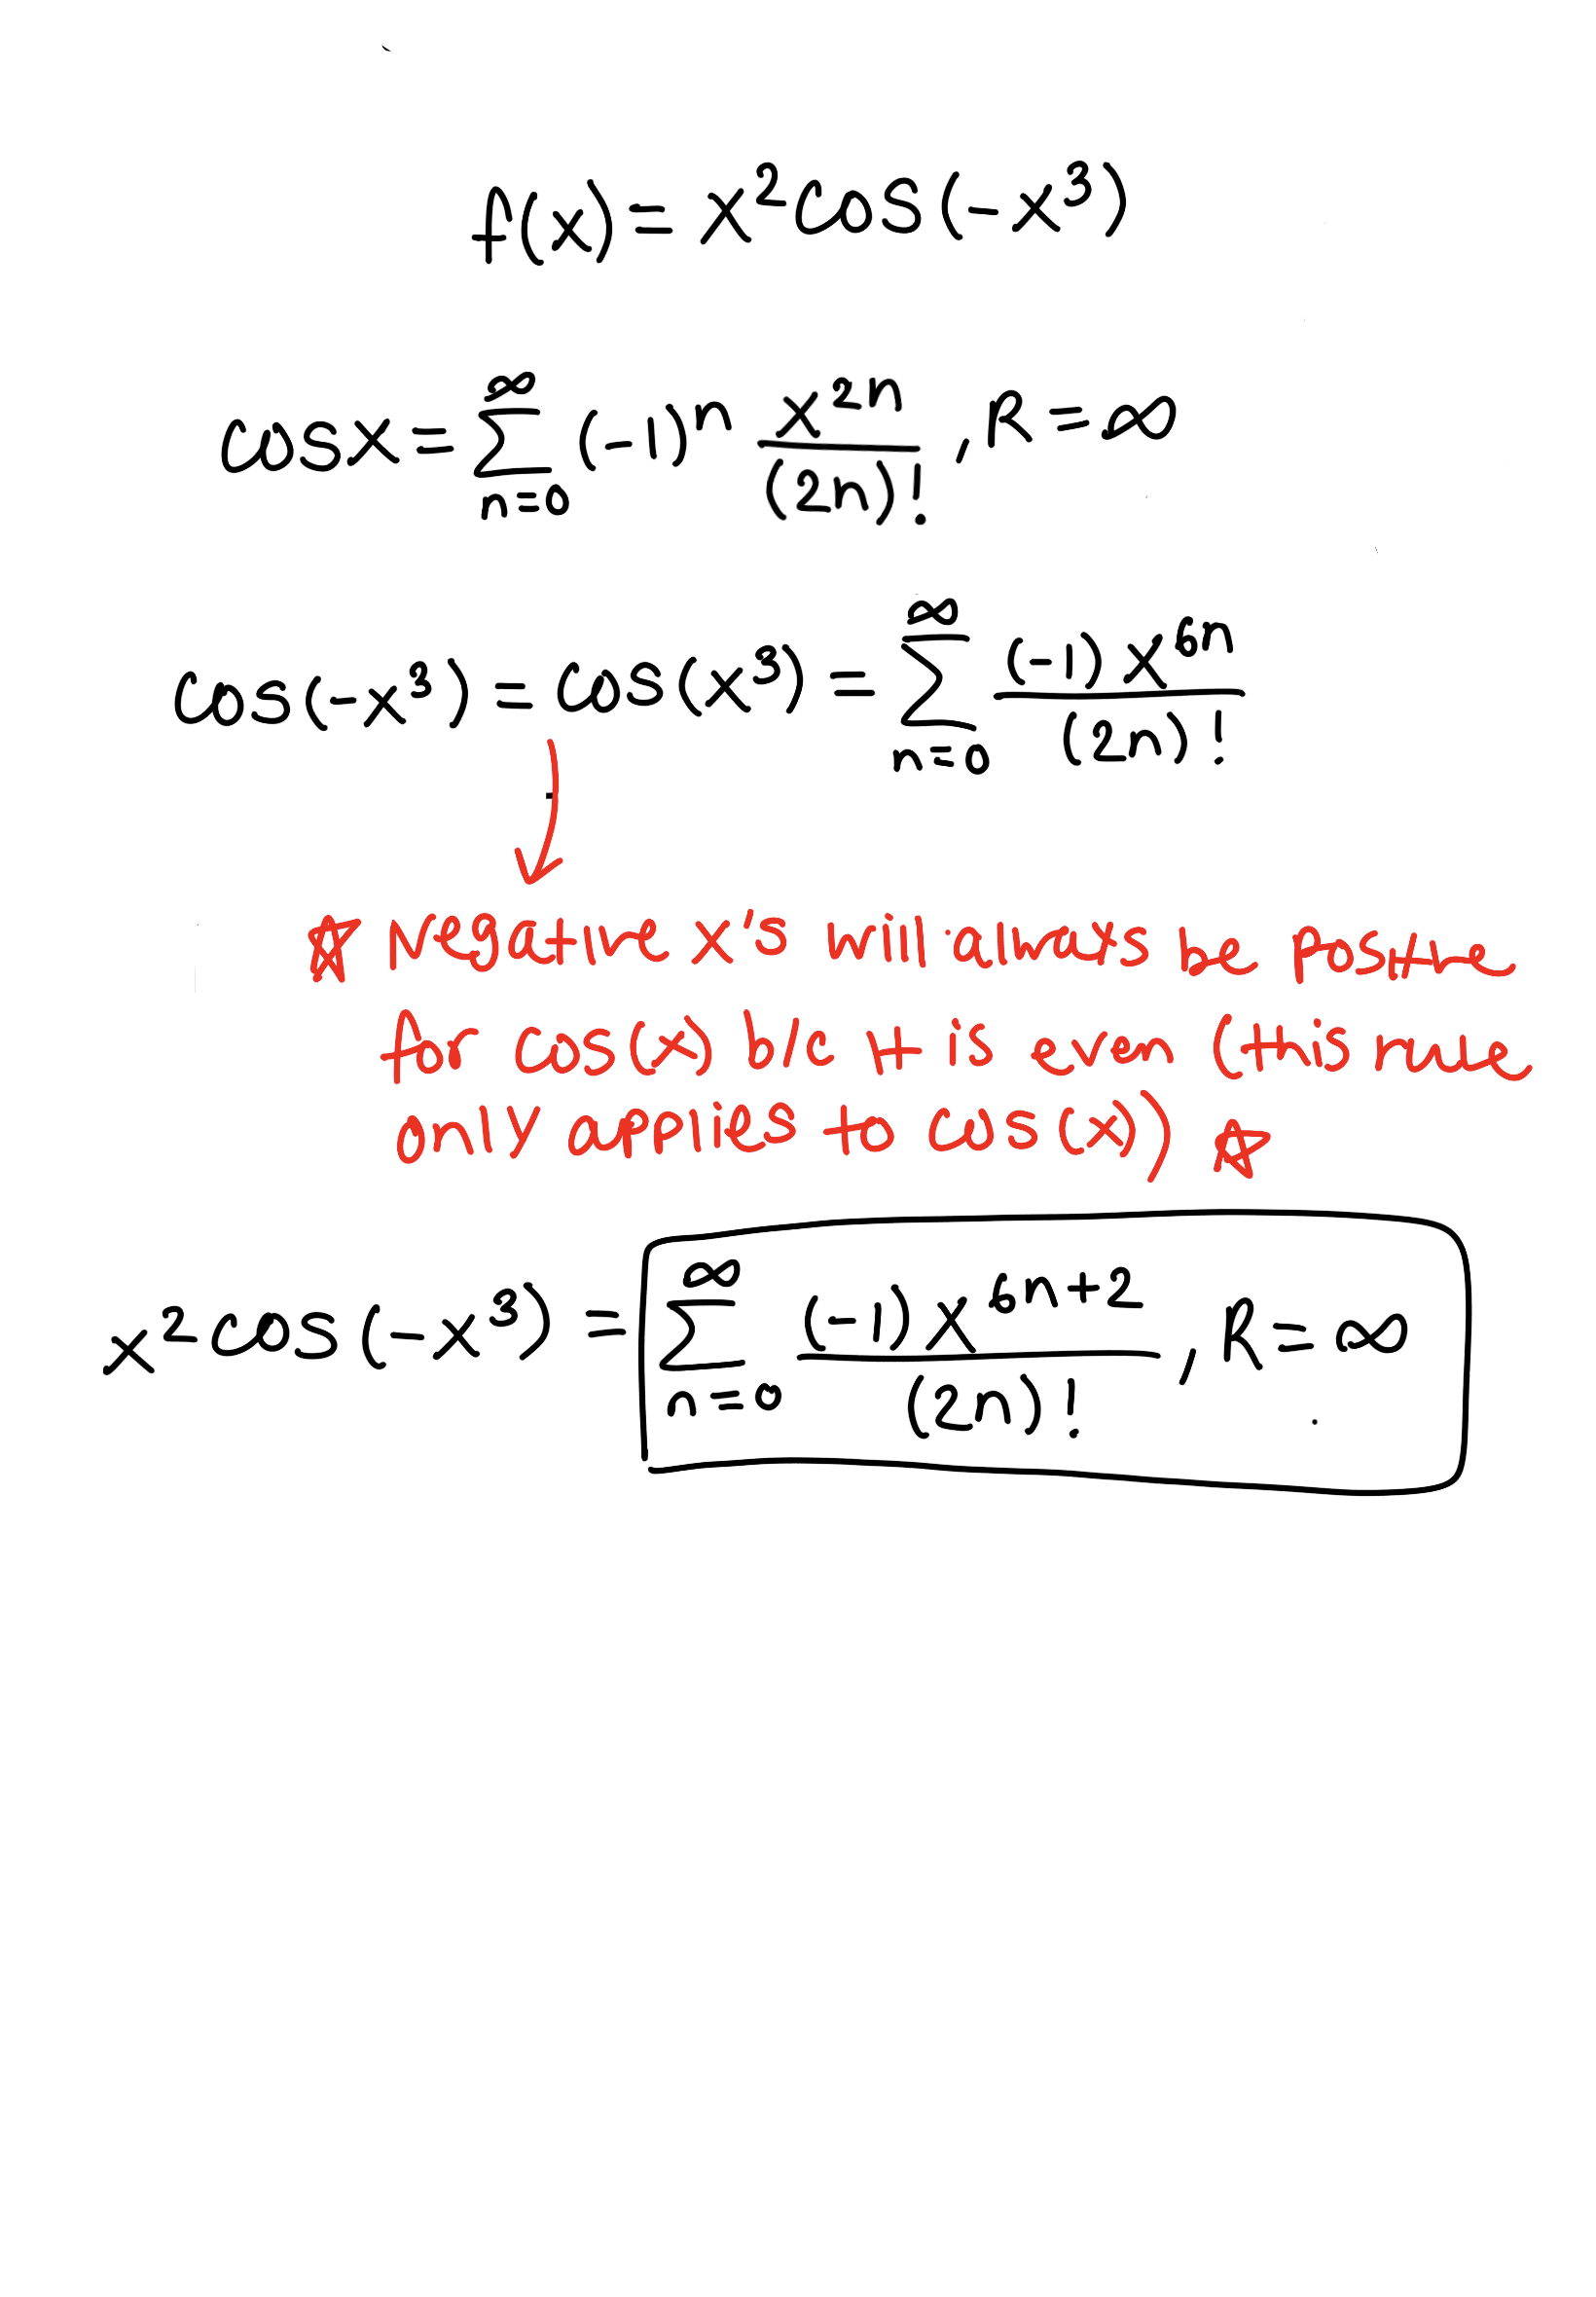 f(x) = x²cos(-x³)
cosx = ∑_{n=0}^{∞} (-1)ⁿ x²ⁿ/(2n)! , R = ∞
cos(-x³) = cos(x³) = ∑_{n=0}^{∞} (-1) x⁶ⁿ/(2n)!
☆ Negative x's will always be positive
for cos(x) b/c it is even (this rule
only applies to cos(x)) ☆
x² cos(-x³) = ∑_{n=0}^{∞} (-1) x⁶ⁿ⁺²/(2n)! , R = ∞